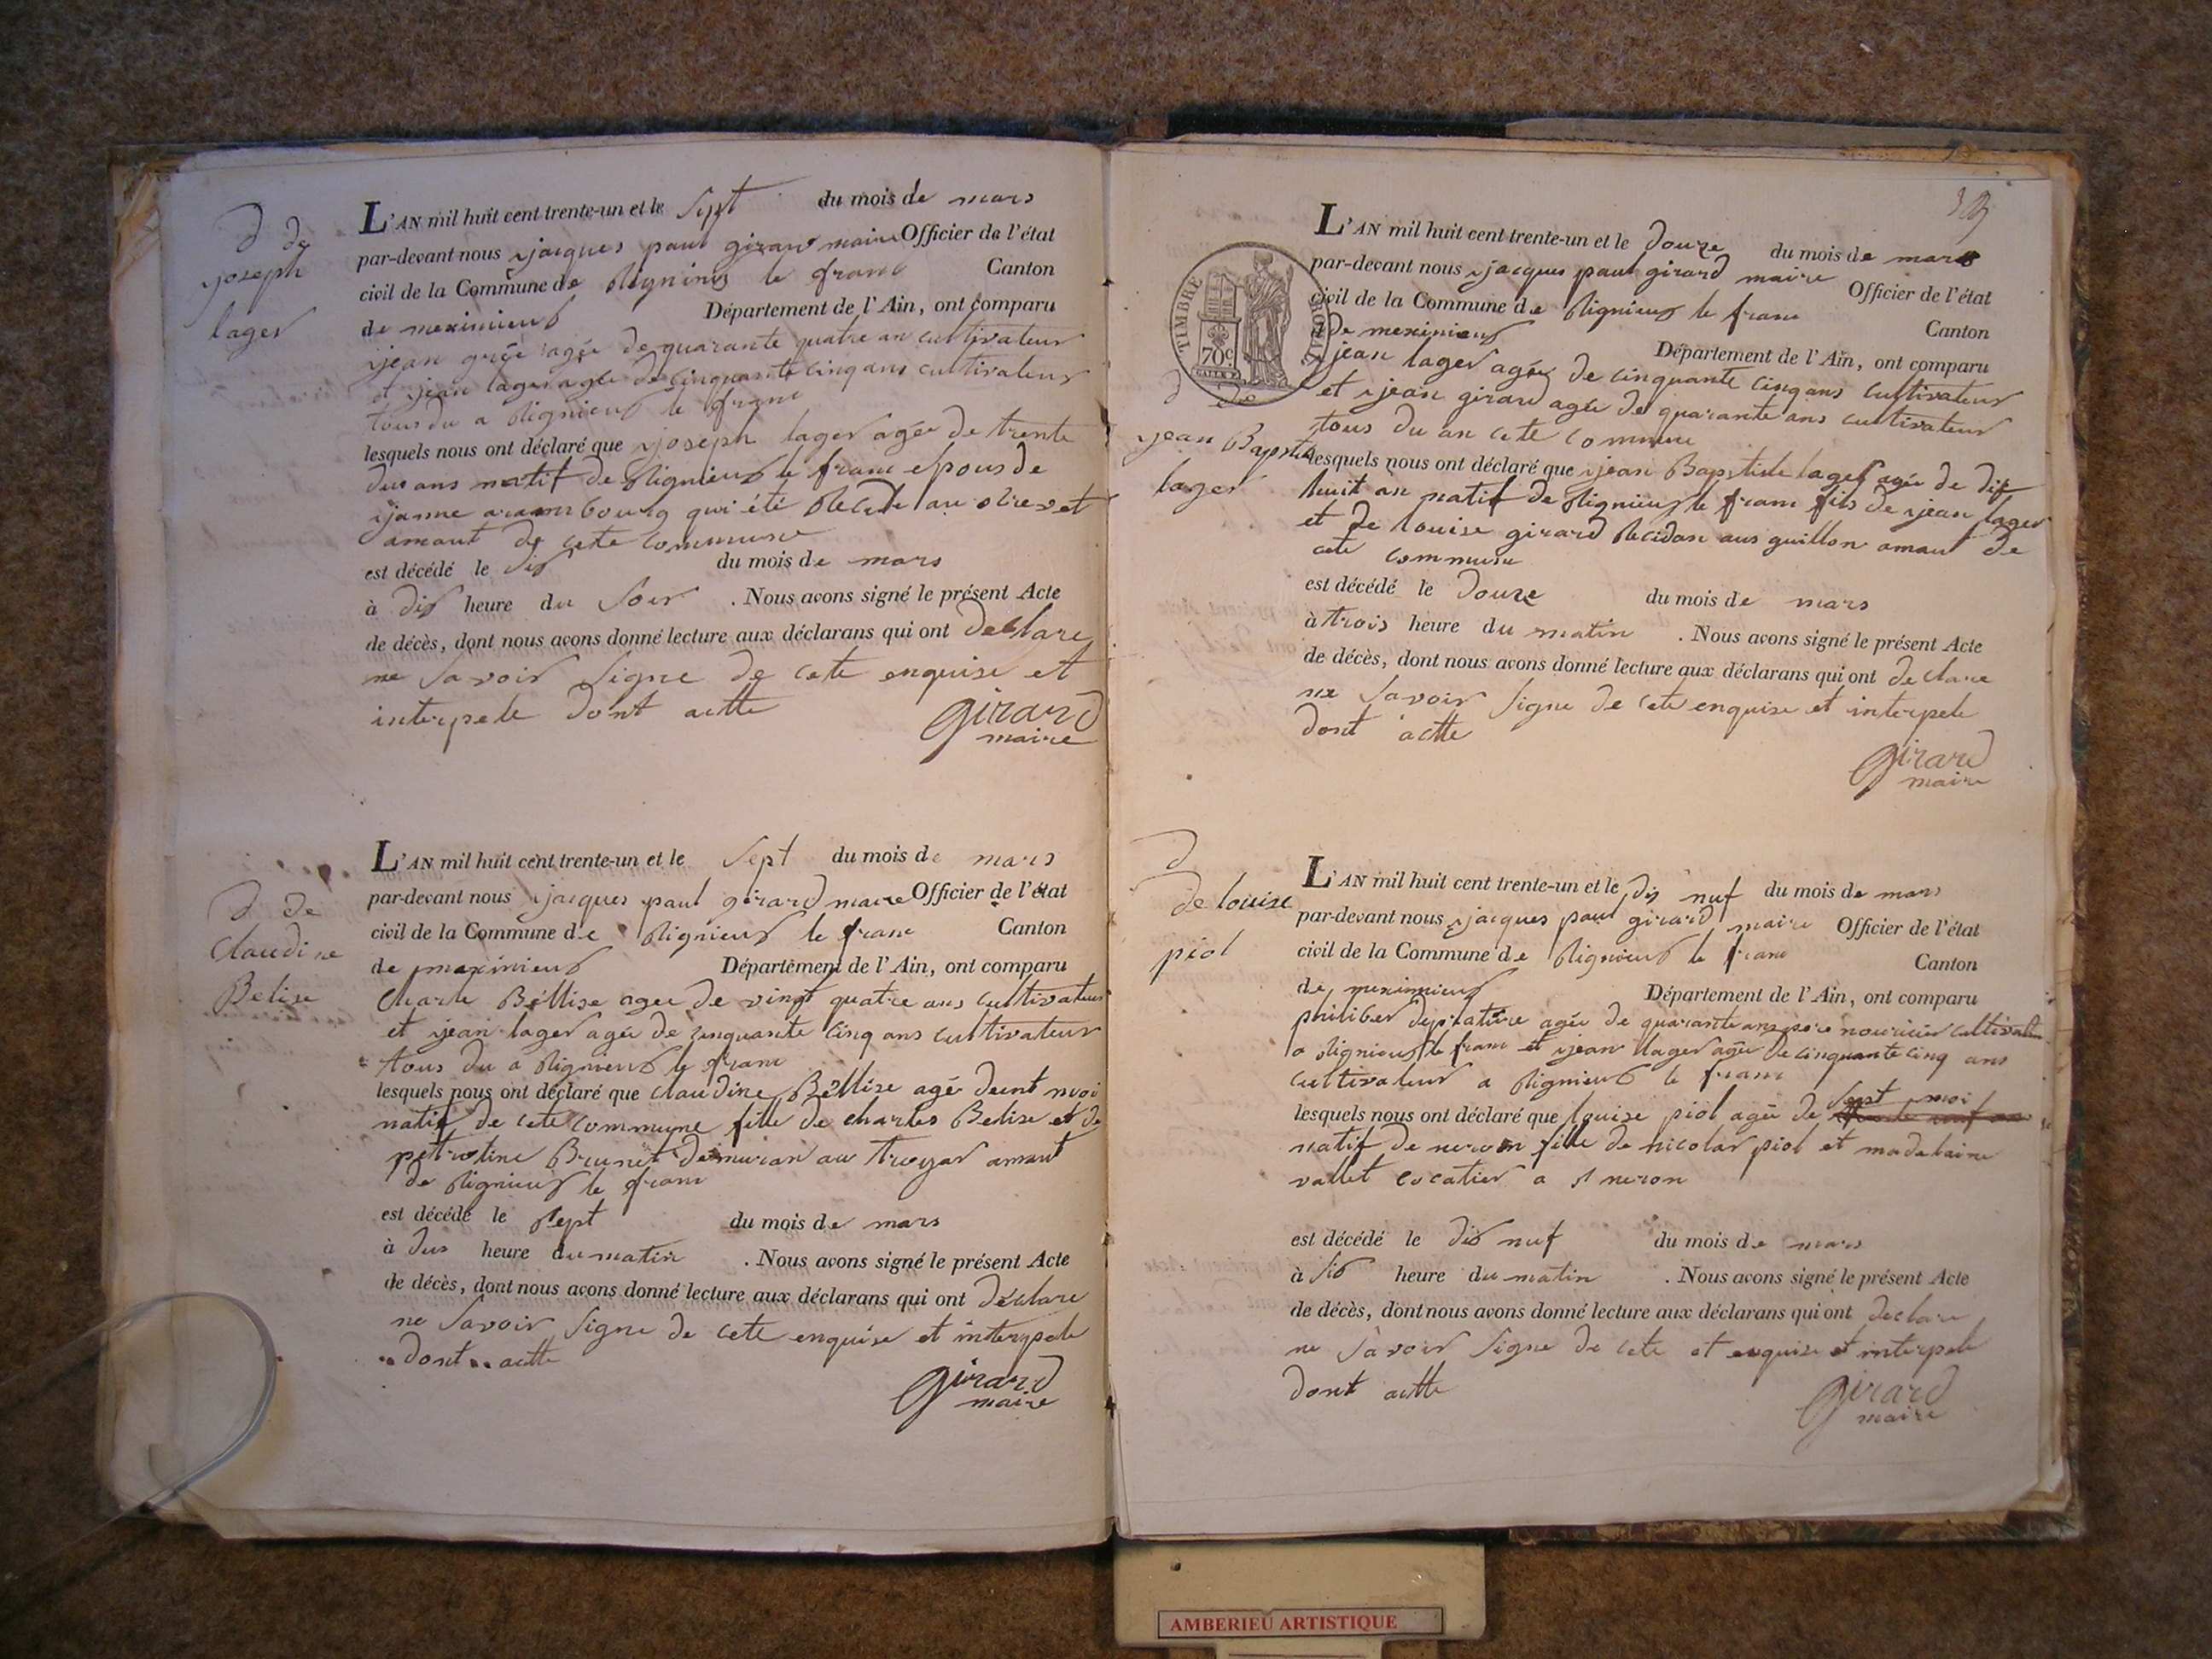 D de
joseph
lager
L'AN mil huit cent trente-un et le sept du mois de mars
par-devant nous jacques paul girard maire Officier de l'état
civil de la Commune de le franc Canton
de meximieux Département de l'Ain, ont comparu
jean agée de quarante quatre an cultivateur
et jean lager agée de cinquante cinq ans cultivateur
tous du a blignieux le franc
lesquels nous ont déclaré que joseph lager agée de trente
dus ans natif de blignieux le franc epous de
janne arambourg qui été au et
amant de cete commune
est décédé le dis du mois de mars
à dis heure du soir . Nous avons signé le présent Acte
de décès, dont nous avons donné lecture aux déclarans qui ont declare
ne savoir signe de cete enquise et
interpele dont actte
girard
maire
D de
Claudine
Belise
L'AN mil huit cent trente-un et le sept du mois de mars
par-devant nous jacques paul girard maire Officier de l'état
civil de la Commune de blignieux le franc Canton
de meximieux Département de l'Ain, ont comparu
Charle Béllise agee de vingt quatre ans cultivateur
et jean lager agée de cinquante cinq ans cultivateur
tous du a blignieux le franc
lesquels nous ont déclaré que claudine Béllise agé deent moi
natif de cete commune fille de charles Belise et de
petrotine Brunet demuran au troyar amant
de blignieux le franc
est décédé le sept du mois de mars
à dus heure du matin . Nous avons signé le présent Acte
de décès, dont nous avons donné lecture aux déclarans qui ont déclare
ne savoir signe de cete enquise et interpele
dont actte
girard
maire
TIMBRE ROYAL
70c
D
de
jean Baptiste
lager
L'AN mil huit cent trente-un et le douze du mois de mars
par-devant nous jacques paul girard maire Officier de l'état
civil de la Commune de blignieux le franc Canton
de meximieux Département de l'Ain, ont comparu
jean lager agée de cinquante cinq ans cultivateur
et jean girard agée de quarante ans cultivateur
tous du an cete commune
lesquels nous ont déclaré que jean Baptiste lager agée de dix
huit an natif de blignieux le franc fils de jean lager
et de louise girard aus guillon amant de
cete commune
est décédé le douze du mois de mars
à trois heure du matin . Nous avons signé le présent Acte
de décès, dont nous avons donné lecture aux déclarans qui ont declare
ne savoir signe de cete enquise et interpele
dont actte
girard
maire
D
de louise
piol
L'AN mil huit cent trente-un et le dis nuf du mois de mars
par-devant nous jacques paul girard maire Officier de l'état
civil de la Commune de blignieux le franc Canton
de meximieux Département de l'Ain, ont comparu
philiber deplatiere agée de quarante ans nouricier cultivateur
a blignieux le franc et jean lager agée de cinquante cinq ans
cultivateur a blignieux le franc
lesquels nous ont déclaré que louise piol agée de sept moi
natif de neron fille de nicolas piol et madelaine
vallet locatier a st neron
est décédé le dis nuf du mois de mars
à sis heure du matin . Nous avons signé le présent Acte
de décès, dont nous avons donné lecture aux déclarans qui ont declare
ne savoir signe de cete et enquise et interpele
dont actte
girard
maire
AMBERIEU ARTISTIQUE